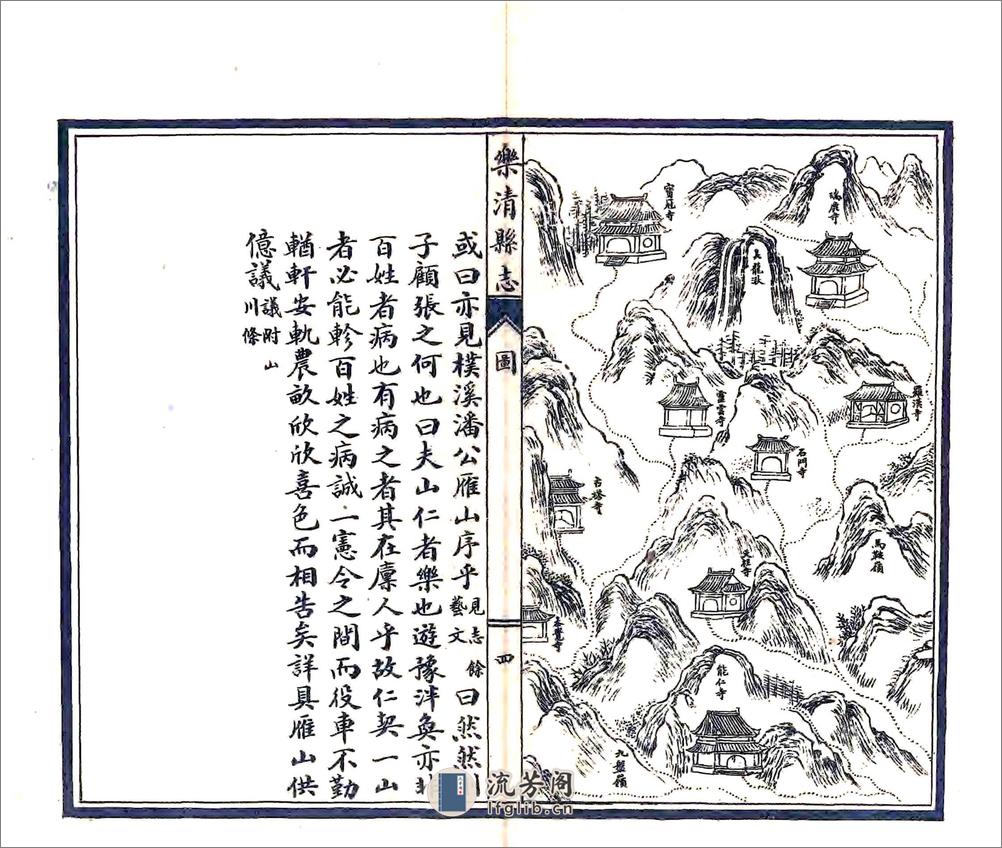 瑞鹿寺
大龍湫
羅漢寺
靈雲寺
石門寺
古塔寺
馬鞍嶺
能仁寺
九盤嶺
樂清縣志
圖
四
或曰亦見樸溪潘公雁山序乎見志餘藝文曰然然
子顧張之何也曰夫山仁者樂也遊豫泮奐亦
百姓者病也有病之者其在廪人乎故仁契一山
者必能軫百姓之病誠一憲令之間而役車不勤
輶軒安軌農畝欣欣喜色而相告矣詳具雁山供
億議議附山川條
流芳阁
lfglib.cn